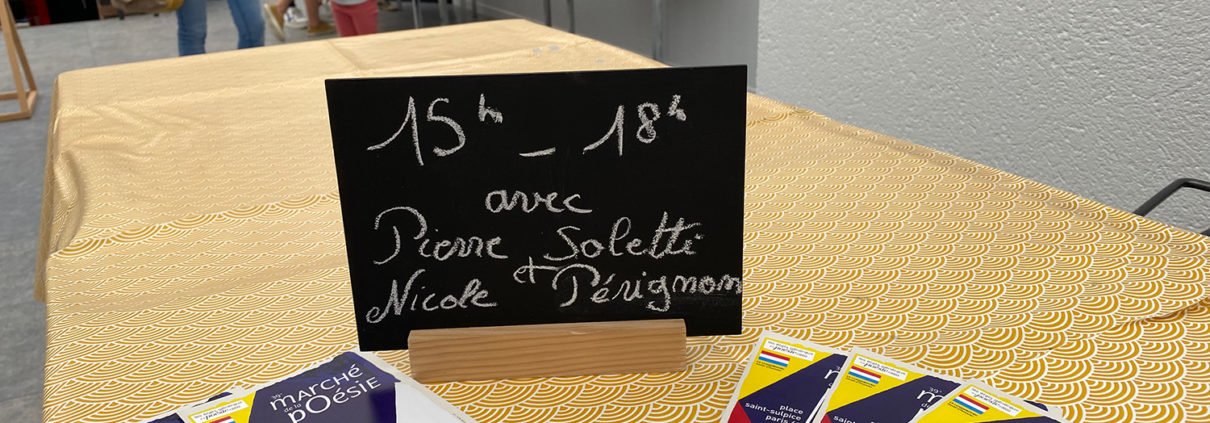 15h - 18h
avec
Pierre Soletti
et
Nicole Pérignon
39e MARCHÉ
de la
POÉSIE
place
saint-sulpice